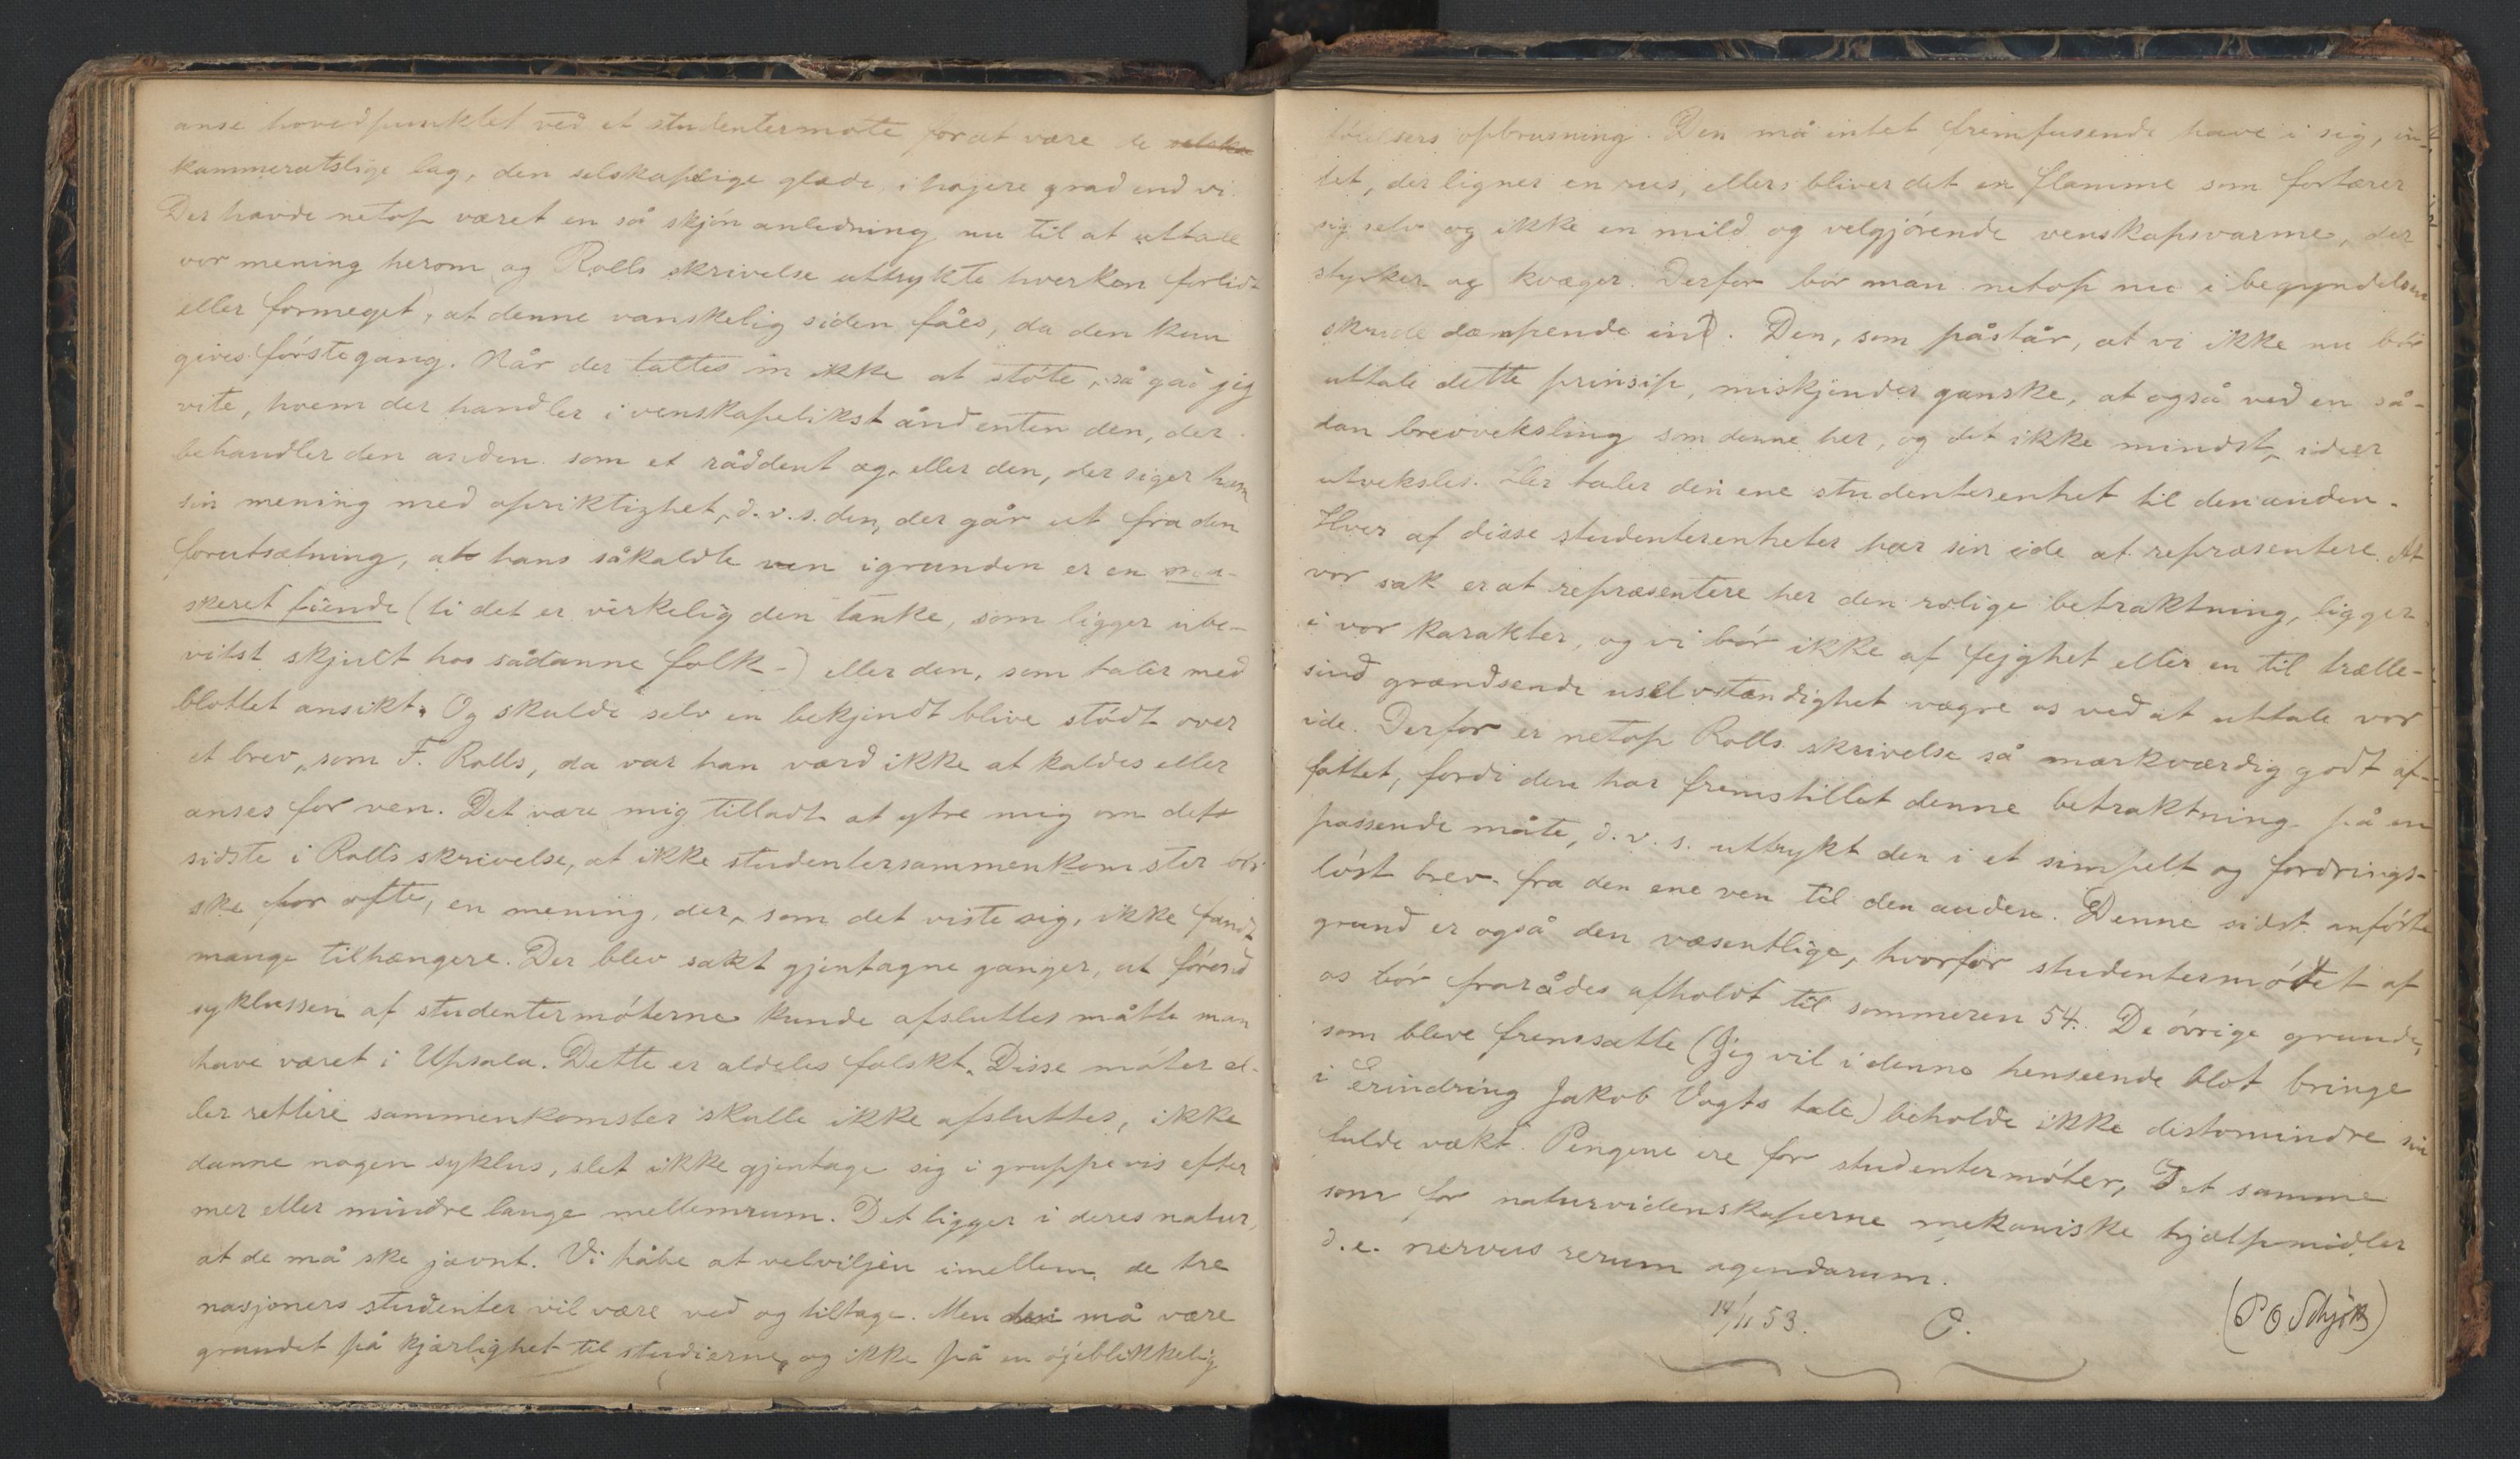 anse hovedpunktet ved et studentermøte for at være de selska
kammeratslige lag, den selskaplige glæde, i højere grad end vi.
Der havde netop været en så skjön anledning nu til at uttale
vor mening herom og Rolls skrivelse uttrykte hverken forlidt
eller formeget, at denne vanskelig siden fåes, da den kun
gives förste gang. Når der taltes om ikke at støte, så gad jeg
vite, hvem der handler i venskapelikst ånd enten den, der
behandler den anden som et råddent æg, eller den, der siger ham
sin mening med opriktighet, d. v. s. den, der går ut fra den
forutsætning, at hans såkaldte ven igrunden er en ma-
skeret fiende (ti det er virkelig den tanke, som ligger ube-
vitst skjult hos sådanne folk-) eller den, som taler med
blottet ansikt. Og skulde selv en bekjendt blive stödt over
et brev, som F. Rolls, da var han værd ikke at kaldes eller
anses for ven. Det være mig tilladt at ytre mig om det
sidste i Rolls skrivelse, at ikke studentersammenkomster bör
ske for ofte, en mening, der, som det viste sig, ikke fandt
mange tilhængere. Der blev sakt gjentagne ganger, at förend
syklussen af studentermöterne kunde afsluttes måtte man
have været i Upsala. Dette er aldeles falskt. Disse möter el-
ler rettere sammenkomster skulle ikke afsluttes, ikke
danne nogen syklus, slet ikke gjentage sig i gruppevis efter
mer eller mindre lange mellemrum. Det ligger i deres natur,
at de må ske jævnt. Vi håbe at velviljen imellem de tre
nasjoners studenter vil være ved og tiltage. Men den må være
grundet på kjærlighet til studierne, og ikke på en öjeblikkelig
følelsers opbrusning. Den må intet fremfusende have i sig, in-
tet, der ligner en rus, ellers bliver det en flamme som fortærer
sig selv og ikke en mild og velgjörende venskapsvarme, der
styrker og kvæger. Derfor bör man netop nu i begyndelsen
skride dæmpende ind. Den, som påstår, at vi ikke nu bör
uttale dette prinsip, miskjender ganske, at også ved en så-
dan brevveksling som denne her, og det ikke mindst, ideer
utveksles. Her taler den ene studenterenhet til den anden.
Hver af disse studenterenheter har sin ide at repræsentere. At
vor sak er at repræsentere her den rolige betraktning, ligger
i vor karakter, og vi bör ikke af fejghet eller en til trælle-
sind grændsende uselvstændighet vægre os ved at uttale vor
ide. Derfor er netop Rolls skrivelse så mærkværdig godt af-
fattet, fordi den har fremstillet denne betraktning på en
passende måte, d. v. s. uttrykt den i et simpelt og fordrings-
löst brev fra den ene ven til den anden. Denne sidst anförte
grund er også den væsentlige, hvorfor studentermötet af
os bör frarådes afholdt til sommeren 54. De övrige grunde,
som bleve fremsatte (Jeg vil i denne henseende blot bringe
i Erindring Jakob Vogts tale) beholde ikke distomindre sin
fulde vækt. Pengene ere for studentermöter, Det samme
som for naturvidenskaperne mekaniske hjælpmidler
d. e. nervus rerum agendarum.
14/11 53. P. (P O Schjött)